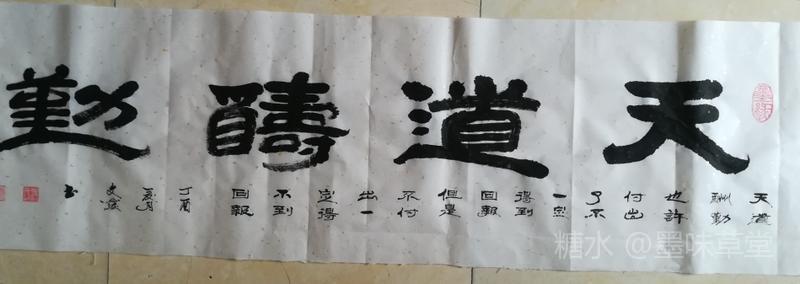 天道醻勤
天道
酬勤
也許
付出
了不
一定
得到
回報
但是
不付
出一
定得
不到
回報
丁酉
夏月
糖水 @墨味草堂